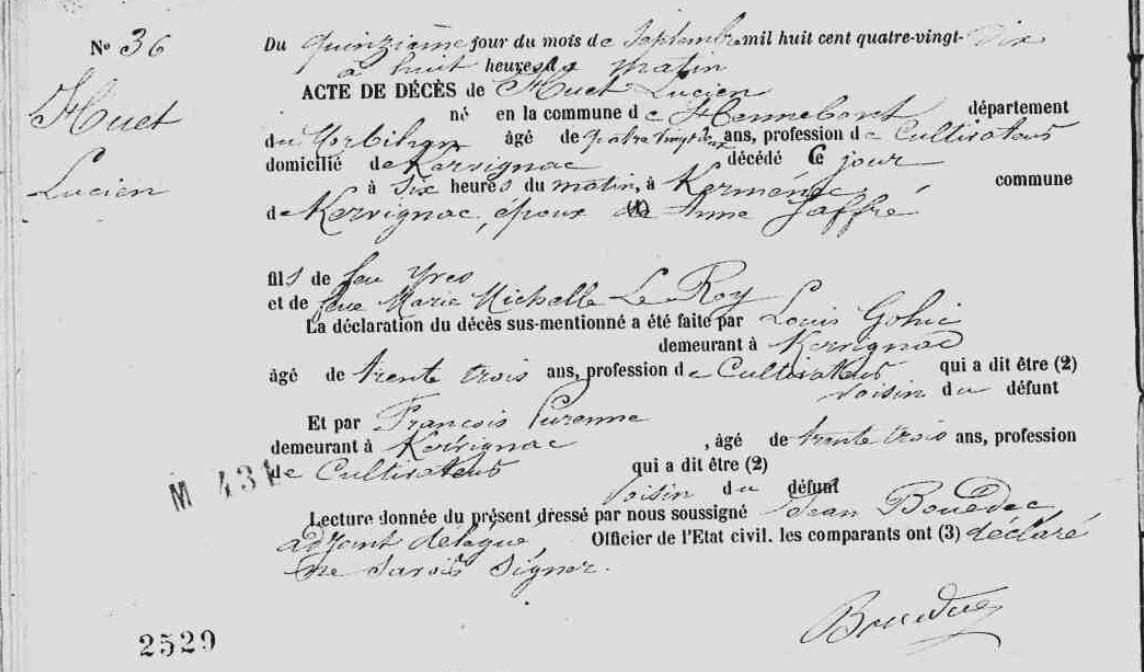 N° 36
Huet
Lucien
Du quinzième jour du mois de Septembre mil huit cent quatre-vingt-Dix
à huit heures du matin
ACTE DE DÉCÈS de Huet Lucien
né en la commune de Hennebont département
du Morbihan âgé de quatre vingt deux ans, profession de Cultivateur
domicilié de Kervignac décédé Ce jour
à Six heures du matin, à Kerménec commune
de Kervignac, époux de Anne Jaffré
fils de feu Yves
et de feue Marie Michelle Le Roy
La déclaration du décès sus-mentionné a été faite par Louis Gohic
demeurant à Kervignac
âgé de trente trois ans, profession de Cultivateur qui a dit être (2)
voisin du défunt
Et par François
demeurant à Kervignac , âgé de trente trois ans, profession
de Cultivateur qui a dit être (2)
voisin du défunt
Lecture donnée du présent dressé par nous soussigné Jean Bouëdec,
adjoint délégué, Officier de l'Etat civil. les comparants ont (3) déclaré
ne savoir signer.
M 431
2529